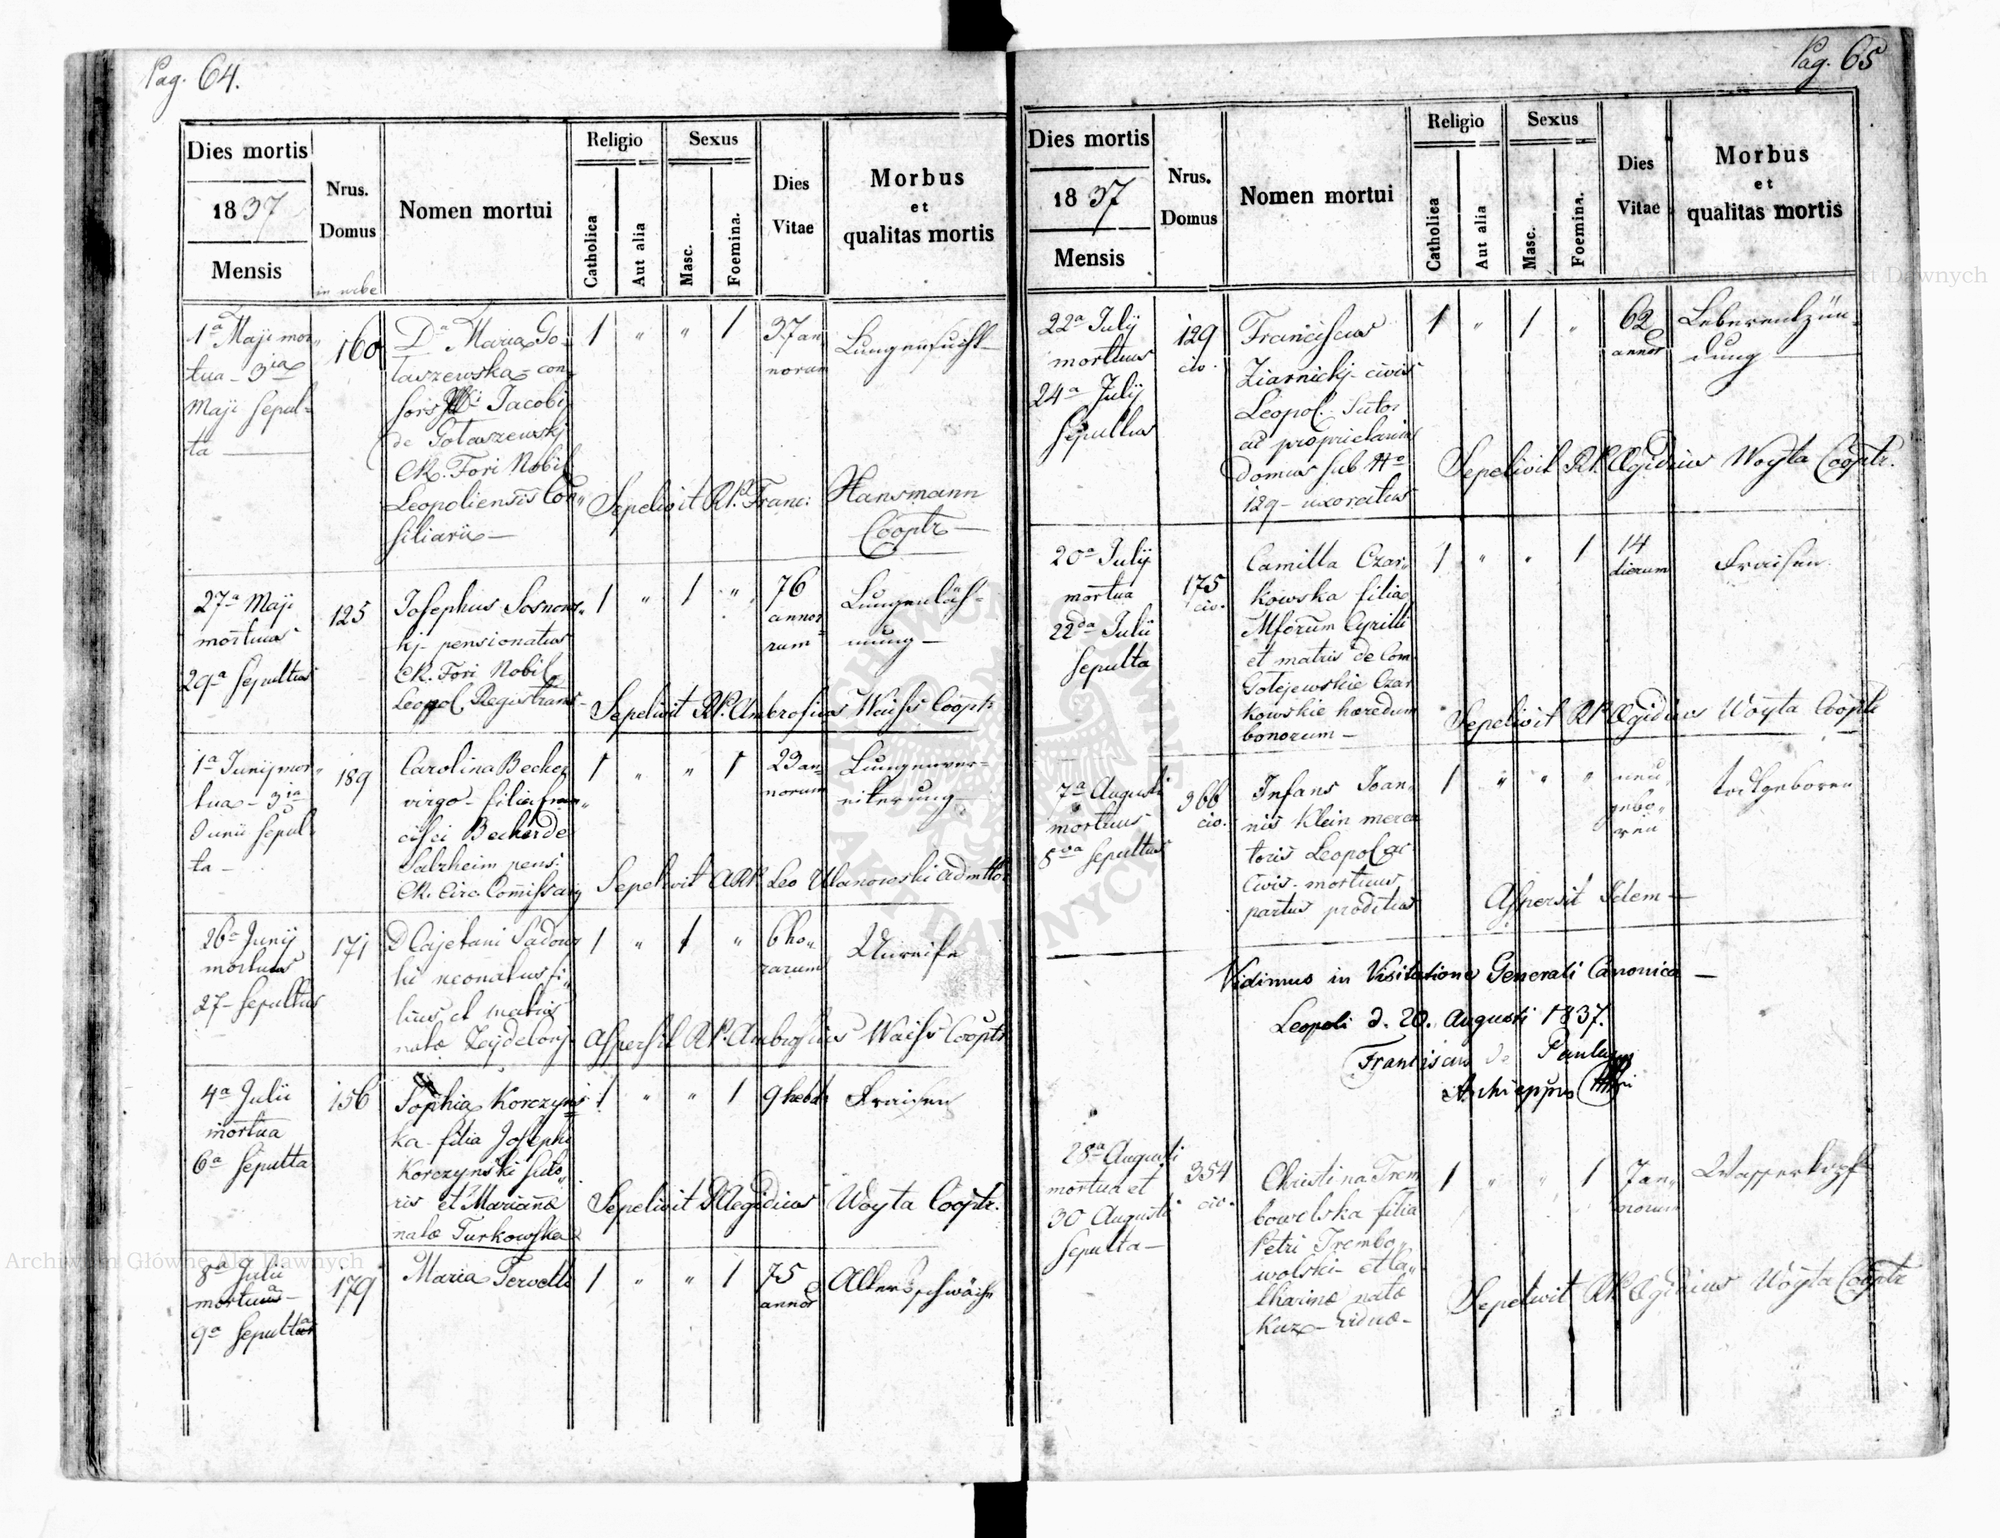 Pag. 64.
Dies mortis
1837
Mensis
Nrus.
Domus
in urbe
Nomen mortui
Religio
Catholica
Aut alia
Sexus
Masc.
Foemina.
Dies
Vitae
Morbus
et
qualitas mortis
1a Maji mor„
tua - 3ia
Maji sepul=
ta
160
Da Maria Go=
taszewska con=
sors Jacobi
de Gotaszewski
CR. Fori Nobil
Leopoliensis Con„
siliarii
1 „ „ 1
37 an
norum
Lungensucht
Sepelivit RP. Franc: Hansmann
Cooptr
27a Maji
mortuus
29a sepultus
125
Josephus Sosnows„
kj pensionatus
CR. Fori Nobil
Leopol Registrans
1 „ 1 „
76
anno=
rum
Lungenläh=
mung
Sepelivit RP. Ambrosius Waiss Cooptr
1a Junij mor„
tua - 3ia
Junii sepul=
ta
189
Carolina Becher
virgo filia fran„
cisci Becher de
Salzheim pens:
CR. Circ. Comissarij
1 „ „ 1
23 an=
norum
Lungenver=
eiterung
Sepelivit ARP. Leo Ulanowski Admttor
26a Junij
mortuus
27 sepultus
171
D Cajetani Sadow
ski neonatus fi„
lius et matris
natae
1 „ 1 „
6 ho„
rarum
Unreife
Aspersit RP. Ambrosius Waiss Cooptr
4a Julii
mortua
6a sepulta
156
Sophia Korczyns
ka filia Josephi
Korczynski suto„
ris et Mariannae
natae Turkowska
1 „ „ 1
9 hebd
Fraisen
Sepelivit P. Aegidius Woyta Cooptr.
8a Julii
mortuus
9a sepulta
179
Maria Tervelli
1 „ „ 1
75
annor
Altersschwäche
Pag. 65
Dies mortis
1837
Mensis
Nrus.
Domus
Nomen mortui
Religio
Catholica
Aut alia
Sexus
Masc.
Foemina.
Dies
Vitae
Morbus
et
qualitas mortis
22a July
mortuus
24a July
sepultus
129
civ.
Franciscus
Ziarnickj civis
Leopol. Sutor
ac proprietarius
domus sub No
129 - uxoratus
1 „ 1 „
62
annor
Leberentzün=
dung
Sepelivit RP. Aegidius Woyta Cooptr.
20a July
mortua
22da Julii
sepulta
175
civ.
Camilla Czar„
kowska filia
Mforum Cyrilli
et matris de Com
Golejewskie Czar
kowskie haeredum
bonorum
1 „ „ 1
14
dierum
Fraisen
Sepelivit RP Aegidius Woyta Cooptr
7a Augusti
mortuus
8va sepultus
366
civ.
Infans Joan„
nis Klein merca
toris Leopol ac
Civis. mortuus
partus proditus
1 „ „ „
neu„
gebo„
ren
todtgeboren
Aspersit Idem
Vidimus in Visitatione Generali Canonica
Leopoli d. 20. Augusti 1837.
Franciscus de Paula
Archieppus
28a Augusti
mortua et
30 Augusti
sepulta
354
civ.
Christina Trem
bowelska filia
Petri Trembo„
wolski et Ca„
tharinae natae
1 „ „ 1
7 an„
norum
Wasserkopf
Sepelivit RP. Aegidius Woyta Cooptr
Archiwum Główne Akt Dawnych
Archiwum Główne Akt Dawnych